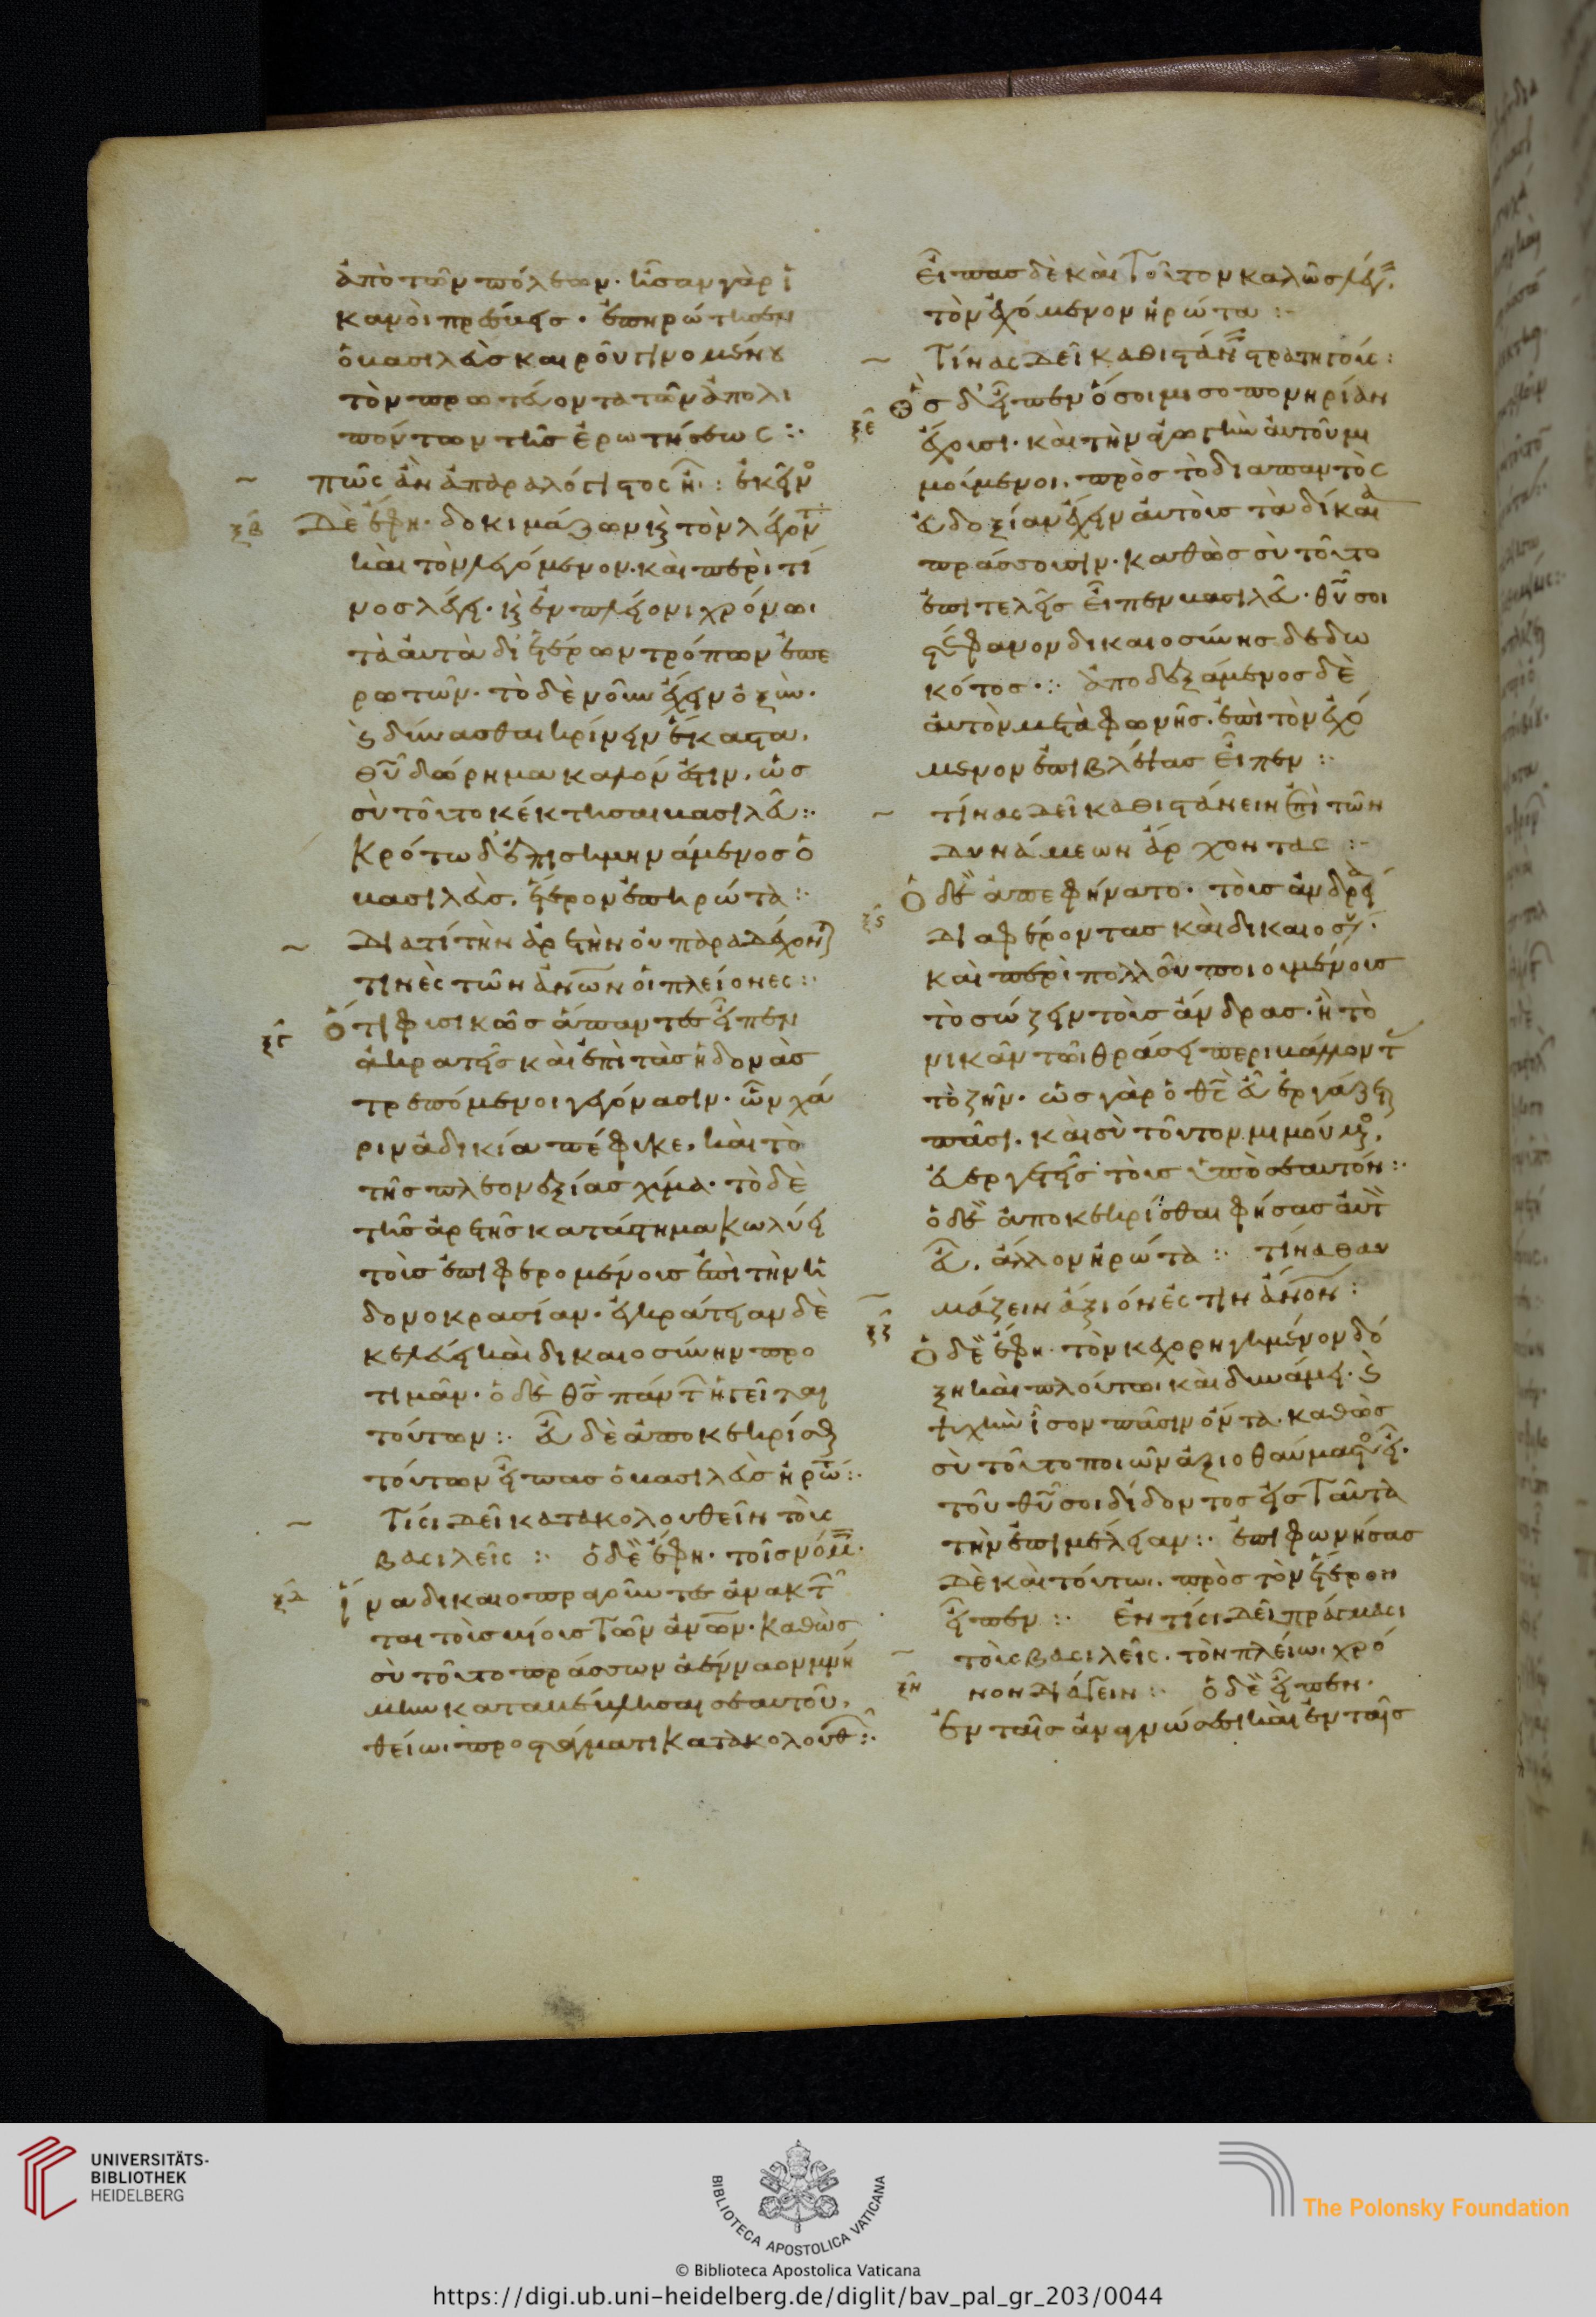 ἀπὸ τῶν πόλεων· ἦσαν γὰρ ἱ
κανοὶ πρέσβεις· ἐπηρώτησεν
ὁ βασιλεὺς καιροῦ γινομένου
τὸν πρωτεύοντα τῶν ἀπολι
πόντων τῆς ἐρωτήσεως :·
~ πῶς ἂν ἀπαραλόγιστος εἴη : ἐκεῖνος
ξβ δὲ ἔφη· δοκιμάζων καὶ τὸν λέγοντα
καὶ τὸν λεγόμενον· καὶ περὶ τί
νος λέγει· καὶ ἐν πλείονι χρόνωι
τὰ αὐτὰ δι' ἑτέρων τρόπων ἐπε
ρωτῶν· τὸ δὲ νοῦν ἔχειν ὀξὺν·
καὶ δύνασθαι κρίνειν ἕκαστα,
θυ δώρημα καλόν ἐστιν, ὡς
σὺ τοῦτο κέκτησαι βασιλεῦ :·
Κρότω δ' ἐπισημηνάμενος ὁ
βασιλεὺς, ἕτερον ἐπηρώτα :·
~ Διατί τὴν ἀρετὴν οὐ παραδέχονται
τινὲς τῶν ἀνων οἱ πλείονες :·
ξγ Ὅτι φυσικῶς ἅπαντες εἶπεν
ἀκρατεῖς καὶ ἐπὶ τὰς ἡδονὰς
τρεπόμενοι γεγόνασιν· ὧν χά
ριν ἀδικία πέφυκε, καὶ τὸ
τῆς πλεονεξίας χύμα· τὸ δὲ
τῆς ἀρετῆς κατάστημα κωλύει
τοὺς ἐπιφερομένους ἐπὶ τὴν ἡ
δονοκρασίαν· ἐγκράτειαν δὲ
κελεύει καὶ δικαιοσύνην προ
τιμᾶν· ὁ δὲ θς πάντων ἡγεῖται
τούτων :· εὖ δὲ ἀποκεκρίσθαι
τούτων εἴπας ὁ βασιλεὺς ἠρώ :·
~ Τίσι δεῖ κατακολουθεῖν τοὺς
βασιλεῖς :· ὁ δὲ ἔφη· τοῖς νόμοις·
ξδ ἵνα δικαιοπραγοῦντες ἀνακτῶν
ται τοὺς βίους τῶν ἀνων· καθὼς
σὺ τοῦτο πράσσων ἀένναον μνή
μην καταβέβλησαι σεαυτοῦ,
θείωι προστάγματι κατακολουθῶν :·
Εἴπας δὲ καὶ τοῦτον καλῶς λέγειν,
τὸν ἐχόμενον ἠρώτα :·
~ Τίνας δεῖ καθιστάνειν στρατηγούς :
ξε Ὃς δ' εἶπεν ὅσοι μισοπονηρίαν
ἔχουσι· καὶ τὴν ἀγωγὴν αὐτοῦ μι
μούμενοι, πρὸς τὸ διαπαντὸς
εὐδοξίαν ἔχειν αὐτοὺς τὰ δίκαια
πράσσουσιν· καθὼς σὺ τοῦτο
ἐπιτελεῖς εἶπεν βασιλεῦ· θυ σοι
στέφανον δικαιοσύνης δεδω
κότος :· ἀποδεξάμενος δὲ
αὐτὸν μετὰ φωνῆς· ἐπὶ τὸν ἐχό
μενον ἐπιβλέψας εἶπεν :·
~ τίνας δεῖ καθιστάνειν ἐπὶ τῶν
δυνάμεων ἄρχοντας :·
ξς Ὁ δὲ ἀπεφήνατο· τοὺς ἀνδρείᾳ
διαφέροντας καὶ δικαιοσύνῃ·
καὶ περὶ πολλοῦ ποιουμένους
τὸ σώζειν τοὺς ἄνδρας· ἢ τὸ
νικᾶν τῶι θράσει περιβάλλοντας
τὸ ζῆν· ὡς γὰρ ὁ θς εὖ ἐργάζεται
πᾶσι, καὶ σὺ τοῦτον μιμούμενος,
εὐεργετεῖς τοὺς ὑπὸ σεαυτόν :·
ὁ δὲ ἀποκεκρίσθαι φήσας αὐτὸν
εὖ, ἄλλον ἠρώτα :· τίνα θαυ
~ μάζειν ἄξιόν ἐστιν ἄνον :
ξζ Ὁ δὲ ἔφη· τὸν κεχορηγημένον δό
ξη καὶ πλούτωι καὶ δυνάμει· καὶ
ψυχὴν ἴσον πᾶσιν ὄντα· καθὼς
σὺ τοῦτο ποιῶν ἀξιοθαύμαστος εἶ·
τοῦ θυ σοι δίδοντος εἰς ταῦτα
τὴν ἐπιμέλειαν :· ἐπιφωνήσας
δὲ καὶ τούτωι πρὸς τὸν ἕτερον
εἶπεν :· Ἐν τίσι δεῖ πράγμασι
~ τοὺς βασιλεῖς τὸν πλείω χρό
ξη νον διάγειν :· ὁ δὲ εἶπεν·
ἐν ταῖς ἀναγνώσεσι καὶ ἐν ταῖς
UNIVERSITÄTS-
BIBLIOTHEK
HEIDELBERG
BIBLIOTECA APOSTOLICA VATICANA
The Polonsky Foundation
© Biblioteca Apostolica Vaticana
https://digi.ub.uni-heidelberg.de/diglit/bav_pal_gr_203/0044